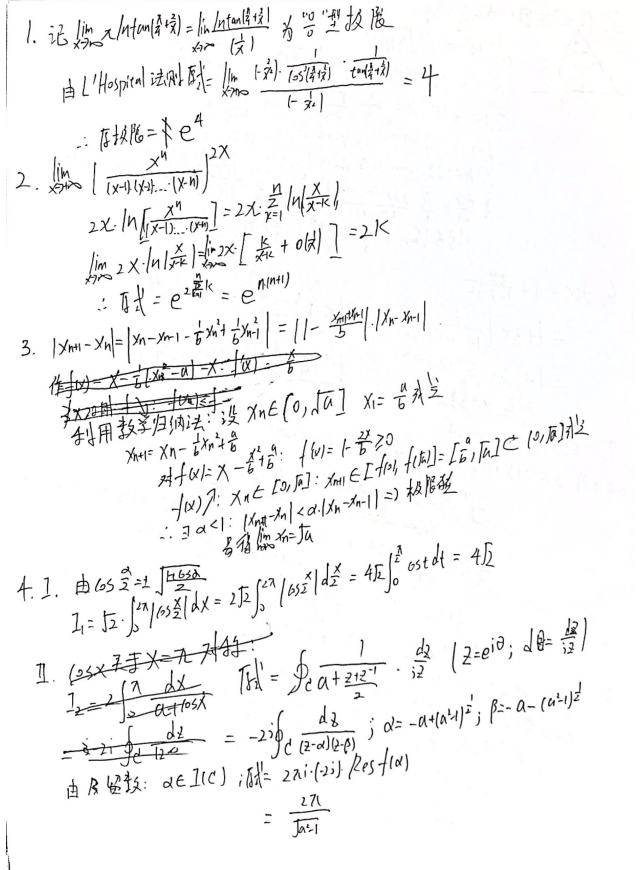 1. 记 lim_{x→∞} x ln tan(π/4+2/x) = lim_{x→∞} ln tan(π/4+2/x) / (1/x) 为 "0/0" 型极限
由 L'Hospital 法则 原式 = lim_{x→∞} (-2/x²)· 1/cos²(π/4+2/x) · 1/tan(π/4+2/x) / (-1/x²) = 4
∴ 原极限 = e^4
2. lim_{x→+∞} [x^n / (x-1)(x-2)....(x-n)]^{2x}
2x·ln[x^n / (x-1)....(x-n)] = 2x·∑_{k=1}^{n} ln(x/(x-k))
lim_{x→∞} 2x ln(x/(x-k)) = lim_{x→∞} 2x·[k/(x-k) + o(1/x)] = 2k
∴ 原式 = e^{2∑_{k=1}^{n} k} = e^{n(n+1)}
3. |x_{n+1} - x_n| = |x_n - x_{n-1} - 1/b x_n² + 1/b x_{n-1}²| = |1 - (x_n+x_{n-1})/b|·|x_n - x_{n-1}|
利用数学归纳法: 设 x_n ∈ [0, √a] x_1 = a/b 成立
x_{n+1} = x_n - 1/b x_n² + a/b
对 f(x) = x - x²/b + a/b : f'(x) = 1 - 2x/b ≥ 0
f(x)↗: x_n ∈ [0, √a] : x_{n+1} ∈ [f(0), f(√a)] = [a/b, √a] ⊂ [0, √a] 成立
∴ ∃ α<1: |x_{n+1} - x_n| < α·|x_n - x_{n-1}| ⇒ 极限
易得 lim_{n→∞} x_n = √a
4. I. 由 cos α/2 = ± √((1+cosα)/2)
I_1 = √2·∫_0^{2π} |cos x/2| dx = 2√2 ∫_0^{2π} |cos x/2| d x/2 = 4√2 ∫_0^{π/2} cost dt = 4√2
II. cosx 关于 x=π 对称:
原式 = ∮_C 1/(a + (z+z^{-1})/2) · dz/iz (z=e^{iθ}; dθ = dz/iz)
I_2 = 2∫_0^π dx/(a+cosx)
= -2i ∮_C dz/((z-α)(z-β)) ; α = -a+(a²-1)^{1/2} ; β = -a-(a²-1)^{1/2}
由 留数: α ∈ I(C) ; 原式 = 2πi·(-2i)·Res f(α)
= 2π/√(a²-1)